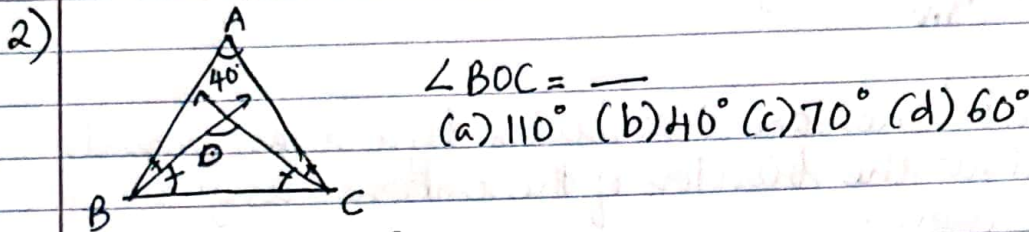 2)
A
40°
O
B
C
∠BOC = —
(a) 110° (b) 40° (c) 70° (d) 60°